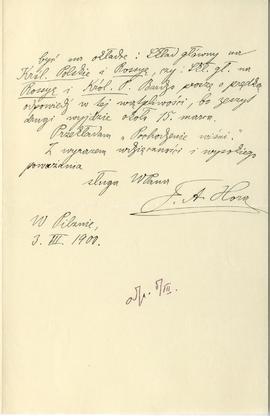 być na okładce: Skład główny na
Król. Polskie i Rosyę, czy: Skł. gł. na
Rosyę i Król. P. Bardzo proszę o prędką
odpowiedź w tej wątpliwości, bo zeszyt
drugi wyjdzie około 15. marca.
Przekładam „Pochodzenie
Z wyrazem wdzięczności i wysokiego
poważania
sługa WPana
F. A. Hora
W Pilznie,
3. III. 1900.
odp. 8/III.